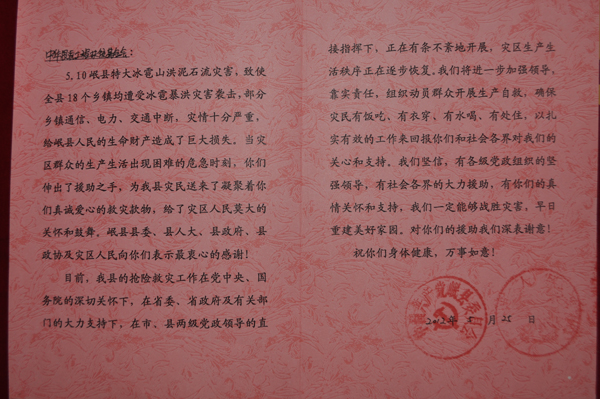 5,10岷县特大冰雹山洪泥石流灾害，致使
全县18个乡镇均遭受冰雹暴洪灾害袭击，部分
乡镇通信、电力、交通中断，灾情十分严重，
给岷县人民的生命财产造成了巨大损失。当灾
区群众的生产生活出现困难的危急时刻，你们
伸出了援助之手，为我县灾民送来了凝聚着你
们真诚爱心的救灾款物，给了灾区人民莫大的
关怀和鼓舞。岷县县委、县人大、县政府、县
政协及灾区人民向你们表示最衷心的感谢！
目前，我县的抢险救灾工作在党中央、国
务院的深切关怀下，在省委、省政府及有关部
门的大力支持下，在市、县两级党政领导的直
接指挥下，正在有条不紊地开展，灾区生产生
活秩序正在逐步恢复。我们将进一步加强领导，
靠实责任，组织动员群众开展生产自救，确保
灾民有饭吃、有衣穿、有水喝、有处住，以扎
实有效的工作来回报你们和社会各界对我们的
关心和支持。我们坚信，有各级党政组织的坚
强领导，有社会各界的大力援助，有你们的真
情关怀和支持，我们一定能够战胜灾害，早日
重建美好家园。对你们的援助我们深表谢意！
祝你们身体健康，万事如意！
月25日